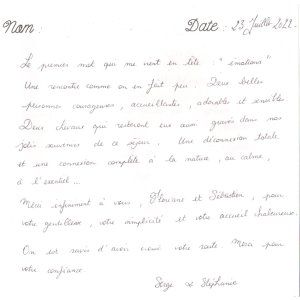 Nom :
Date : 23 Juillet 2022
Le premier mot qui me vient en tête : "émotions"
Une rencontre comme on en fait peu. Deux belles
personnes courageuses, accueillantes, adorables et sensibles
Deux chevaux qui resteront eux aussi gravés dans nos
jolis souvenirs de ce séjour. Une déconnexion totale
et une connexion complète à la nature, au calme,
à l'essentiel...
Merci infiniment à vous, Floriane et Sébastien, pour
votre gentillesse, votre simplicité et votre accueil chaleureux.
On est ravis d'avoir croisé votre route. Merci pour
votre confiance.
Serge & Stéphanie